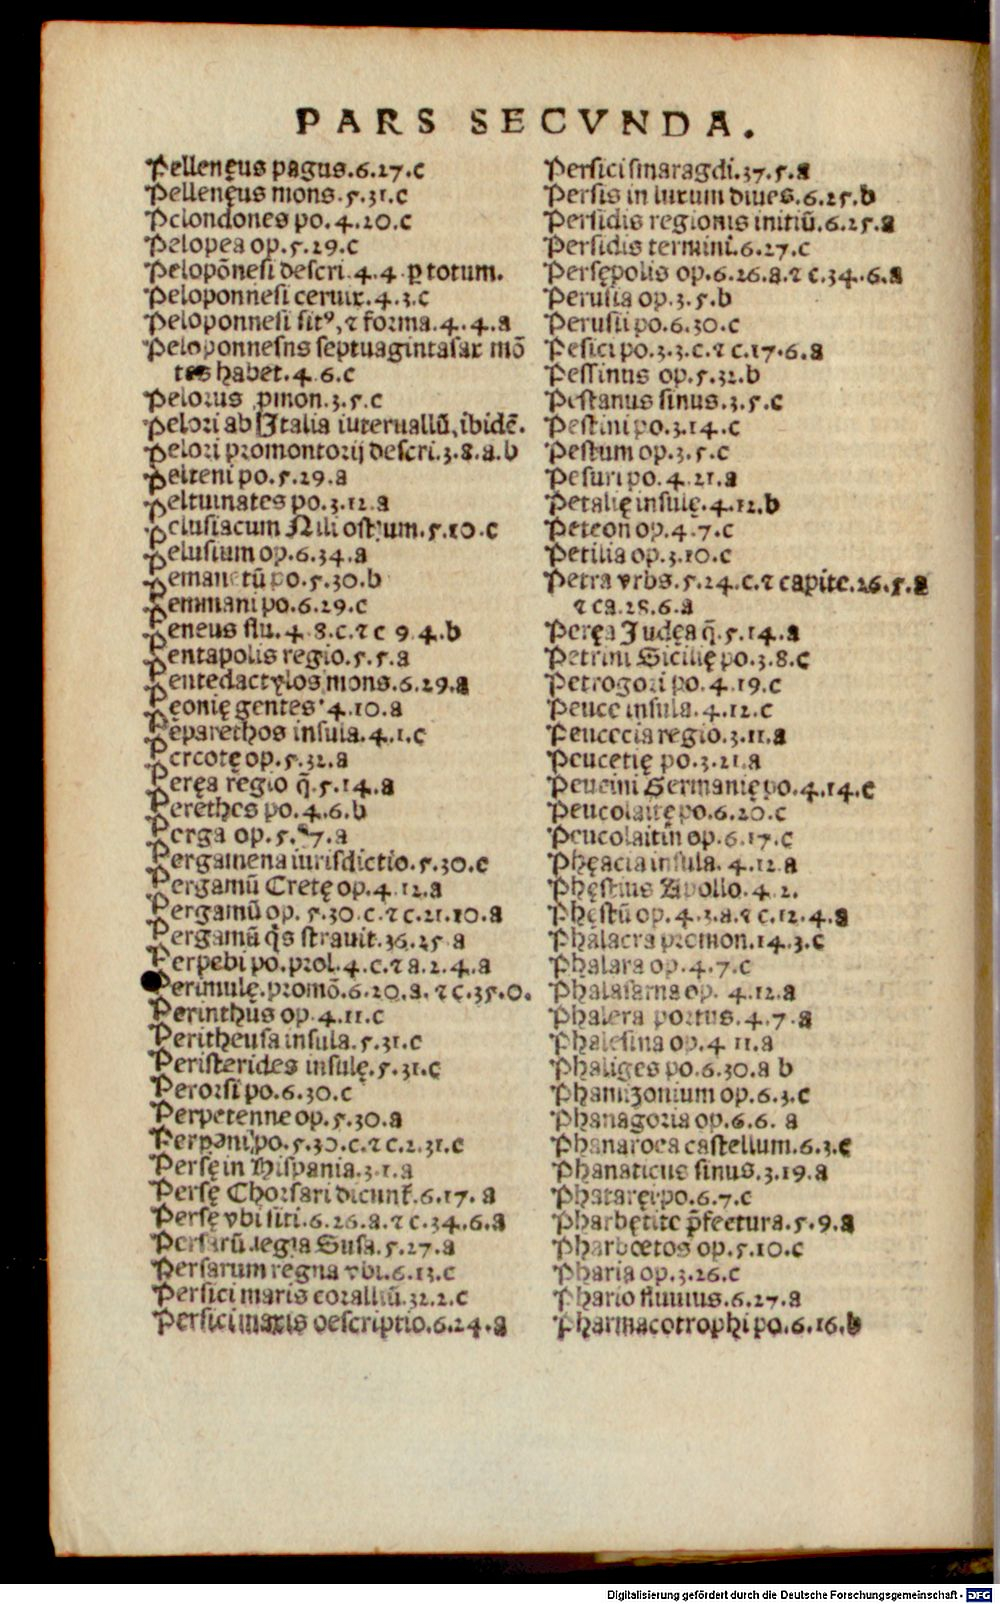 PARS SECVNDA.
Pellenęus pagus.6.27.c
Pellenęus mons.5.31.c
Pelondones po.4.20.c
Pelopea op.5.29.c
Pelopōnesi descri.4.4.ꝑ totum.
Peloponnesi ceruix.4.3.c
Peloponnesi sitꝰ, ⁊ forma.4.4.a
Peloponnesns septuagintasax mō
tes habet.4.6.c
Pelorus ꝓmon.3.5.c
Pelori ab Italia iuteruallū, ibidē.
Pelori promontorij descri.3.8.a.b
Pelteni po.5.29.a
Peltuinates po.3.12.a
Pelusiacum Nili ostium.5.10.c
Pelusium op.6.34.a
Pemanetū po.5.30.b
Pemmani po.6.29.c
Peneus flu.4.8.c.⁊ c 9.4.b
Pentapolis regio.5.5.a
Pentedactylos mons.6.29.a
Pęonię gentes 4.10.a
Pęparethos insula.4.1.c
Percotę op.5.32.a
Peręa regio q̄.5.14.a
Perethes po.4.6.b
Perga op.5. 7.a
Pergamena iurisdictio.5.30.c
Pergamū Cretę op.4.12.a
Pergamū op. 5.30.c.⁊ c.21.10.a
Pergamū q̄s strauit.36.25.a
Perpebi po.prol.4.c.⁊ a.2.4.a
Perimulę.promō.6.20.a.⁊ c.35.0.
Perinthus op.4.11.c
Peritheusa insula.5.31.c
Peristerides insulę.5.31.c
Perorsi po.6.30.c
Perpetenne op.5.30.a
Perpəni po.5.30.c.⁊ c.2.31.c
Persę in Hispania.3.1.a
Persę Chorsari dicunt̄.6.17.a
Persę vbi siti.6.26.a.⁊ c.34.6.a
Persarū regia Susa.5.27.a
Persarum regna vbi.6.13.c
Persici maris coralliū.32.2.c
Persici maris descriptio.6.24.a
Persici smaragdi.37.5.a
Persis in luxum diues.6.25.b
Persidis regionis initiū.6.25.a
Persidis termini.6.27.c
Persępolis op.6.26.a.⁊ c.34.6.a
Perusia op.3.5.b
Perusii po.6.30.c
Pesici po.3.3.c.⁊ c.17.6.a
Pessinus op.5.32.b
Pestanus sinus.3.5.c
Pestini po.3.14.c
Pestum op.3.5.c
Pesuri po.4.21.a
Petalię insulę.4.12.b
Peteon op.4.7.c
Petilia op.3.10.c
Petra vrbs.5.24.c.⁊ capite.26.5.a
⁊ ca.28.6.a
Peręa Iudęa q̄.5.14.a
Petrini Sicilię po.3.8.c
Petrogori po.4.19.c
Peuce insula.4.12.c
Peucecia regio.3.11.a
Peucetię po.3.21.a
Peucini Germanię po.4.14.c
Peucolaitę po.6.20.c
Peucolaitin op.6.17.c
Phęacia insula.4.12.a
Phęstius Apollo.4.2.
Phęstū op.4.3.a.⁊ c.12.4.a
Phalacra promon.14.3.c
Phalara op.4.7.c
Phalasarna op. 4.12.a
Phalera portus.4.7.a
Phalesina op.4 11.a
Phaliges po.6.30.a b
Phamizonium op.6.3.c
Phanagoria op.6.6. a
Phanaroea castellum.6.3.c
Phanaticus sinus.3.19.a
Phataręi po.6.7.c
Pharbętite p̄fectura.5.9.a
Pharboetos op.5.10.c
Pharia op.3.26.c
Phario fluuius.6.27.a
Pharmacotrophi po.6.16.b
Digitalisierung gefördert durch die Deutsche Forschungsgemeinschaft - DFG